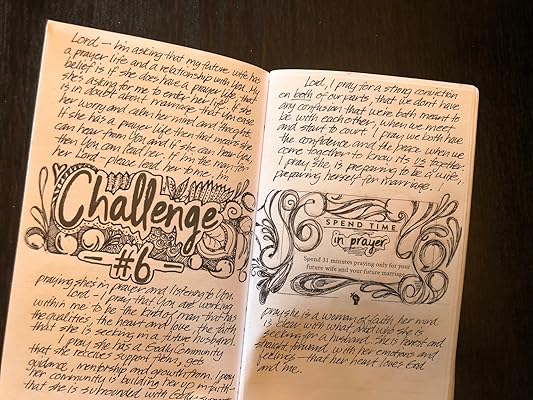 Lord — I'm asking that my future wife has
a prayer life and a relationship with You. My
belief is if she does have a prayer life, that
she's asking for me to enter her life. If she
is in doubt about marriage, that You ease
her worry and calm her mind and thoughts.
If she has a prayer life then that means she
can hear from You and if she can hear You,
then You can lead her. If I'm the man for
her Lord — please lead her to me. I'm
Challenge
#6
praying she's in prayer and listening to You.
Lord — I pray that You are working
within me to be the kind of man that has
the qualities, the heart and love, the faith
that she is seeking in a future husband.
I pray she has a Godly Community
that she receives support from, gets
guidance, mentorship and growth from. I pray
her community is building her up in faith —
that she is surrounded with Godly support
Lord, I pray for a strong conviction
on both of our parts, that we don't have
any confusion that we're both meant to
be with each other, when we meet
and start to court. I pray we both have
the confidence and the peace when we
come together to know it's us together.
I pray she is preparing to be a wife,
preparing herself for marriage. I
SPEND TIME
in prayer
Spend 31 minutes praying only for your
future wife and your future marriage.
pray she is a woman of faith, her mind
is clear with what and who she is
seeking for a husband. She is honest and
straight forward with her emotions and
feelings — that her heart loves God
and me.